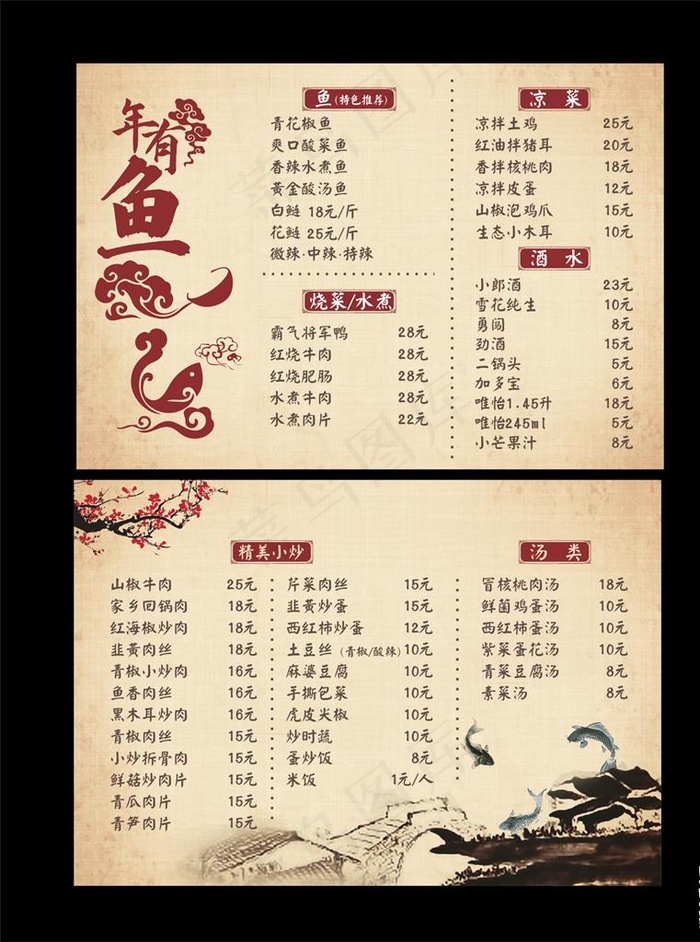 年有
鱼
鱼(特色推荐)
青花椒鱼
爽口酸菜鱼
香辣水煮鱼
黄金酸汤鱼
白鲢 18元/斤
花鲢 25元/斤
微辣·中辣·特辣
烧菜/水煮
霸气将军鸭 28元
红烧牛肉 28元
红烧肥肠 28元
水煮牛肉 28元
水煮肉片 22元
凉菜
凉拌土鸡 25元
红油拌猪耳 20元
香拌核桃肉 18元
凉拌皮蛋 12元
山椒泡鸡爪 15元
生态小木耳 10元
酒水
小郎酒 23元
雪花纯生 10元
勇闯 8元
劲酒 15元
二锅头 5元
加多宝 6元
唯怡1.45升 18元
唯怡245ml 5元
小芒果汁 8元
精美小炒
山椒牛肉 25元
家乡回锅肉 18元
红海椒炒肉 18元
韭黄肉丝 18元
青椒小炒肉 16元
鱼香肉丝 16元
黑木耳炒肉 16元
青椒肉丝 15元
小炒拆骨肉 15元
鲜菇炒肉片 15元
青瓜肉片 15元
青笋肉片 15元
芹菜肉丝 15元
韭黄炒蛋 15元
西红柿炒蛋 12元
土豆丝(青椒/酸辣)10元
麻婆豆腐 10元
手撕包菜 10元
虎皮尖椒 10元
炒时蔬 10元
蛋炒饭 8元
米饭 1元/人
汤类
冒核桃肉汤 18元
鲜菌鸡蛋汤 10元
西红柿蛋汤 10元
紫菜蛋花汤 10元
青菜豆腐汤 8元
素菜汤 8元